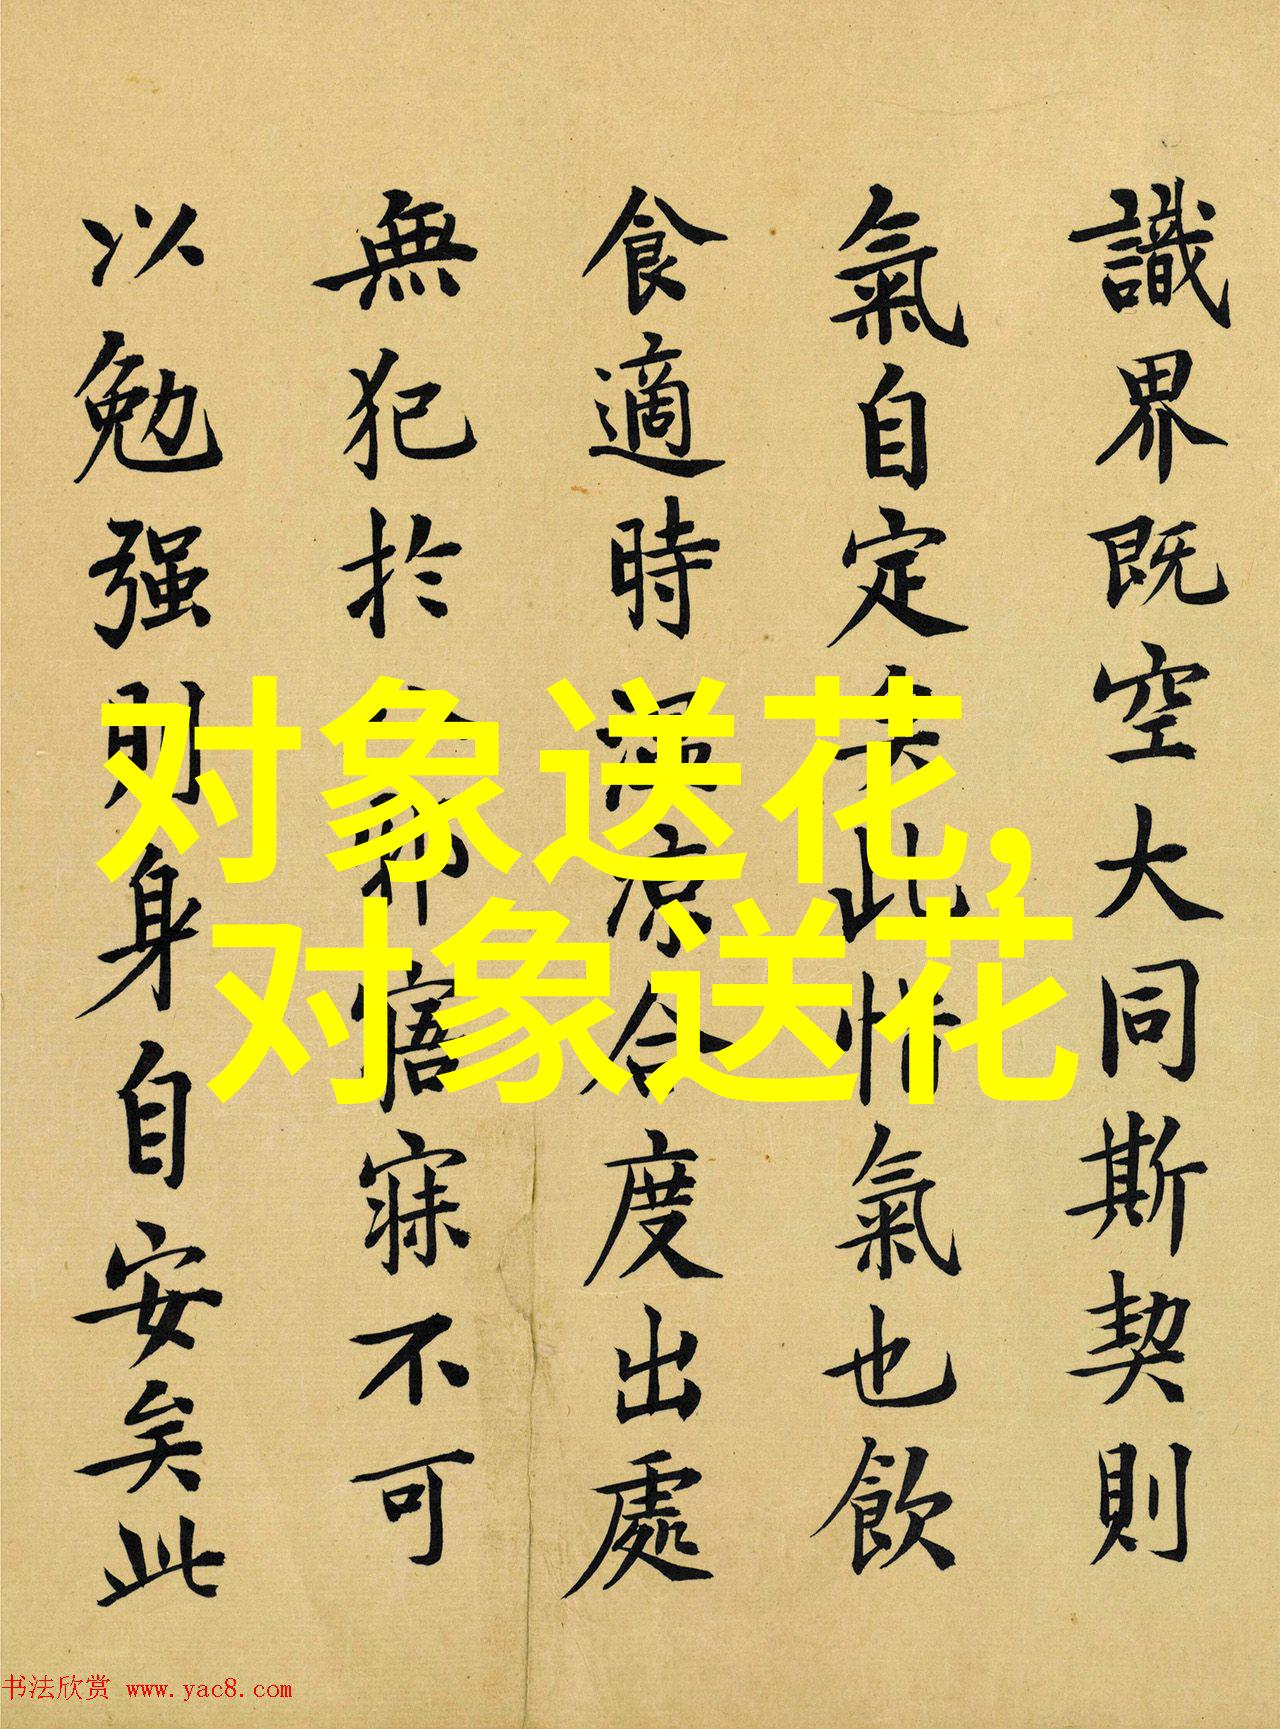 識界既空大同斯契則
氣自定矣此惜氣也飲
食適時溫涼合度出處
無犯於八邪寤寐不可
以勉强則身自安矣此
对象送花,
对象送花
书法欣赏 www.yac8.com